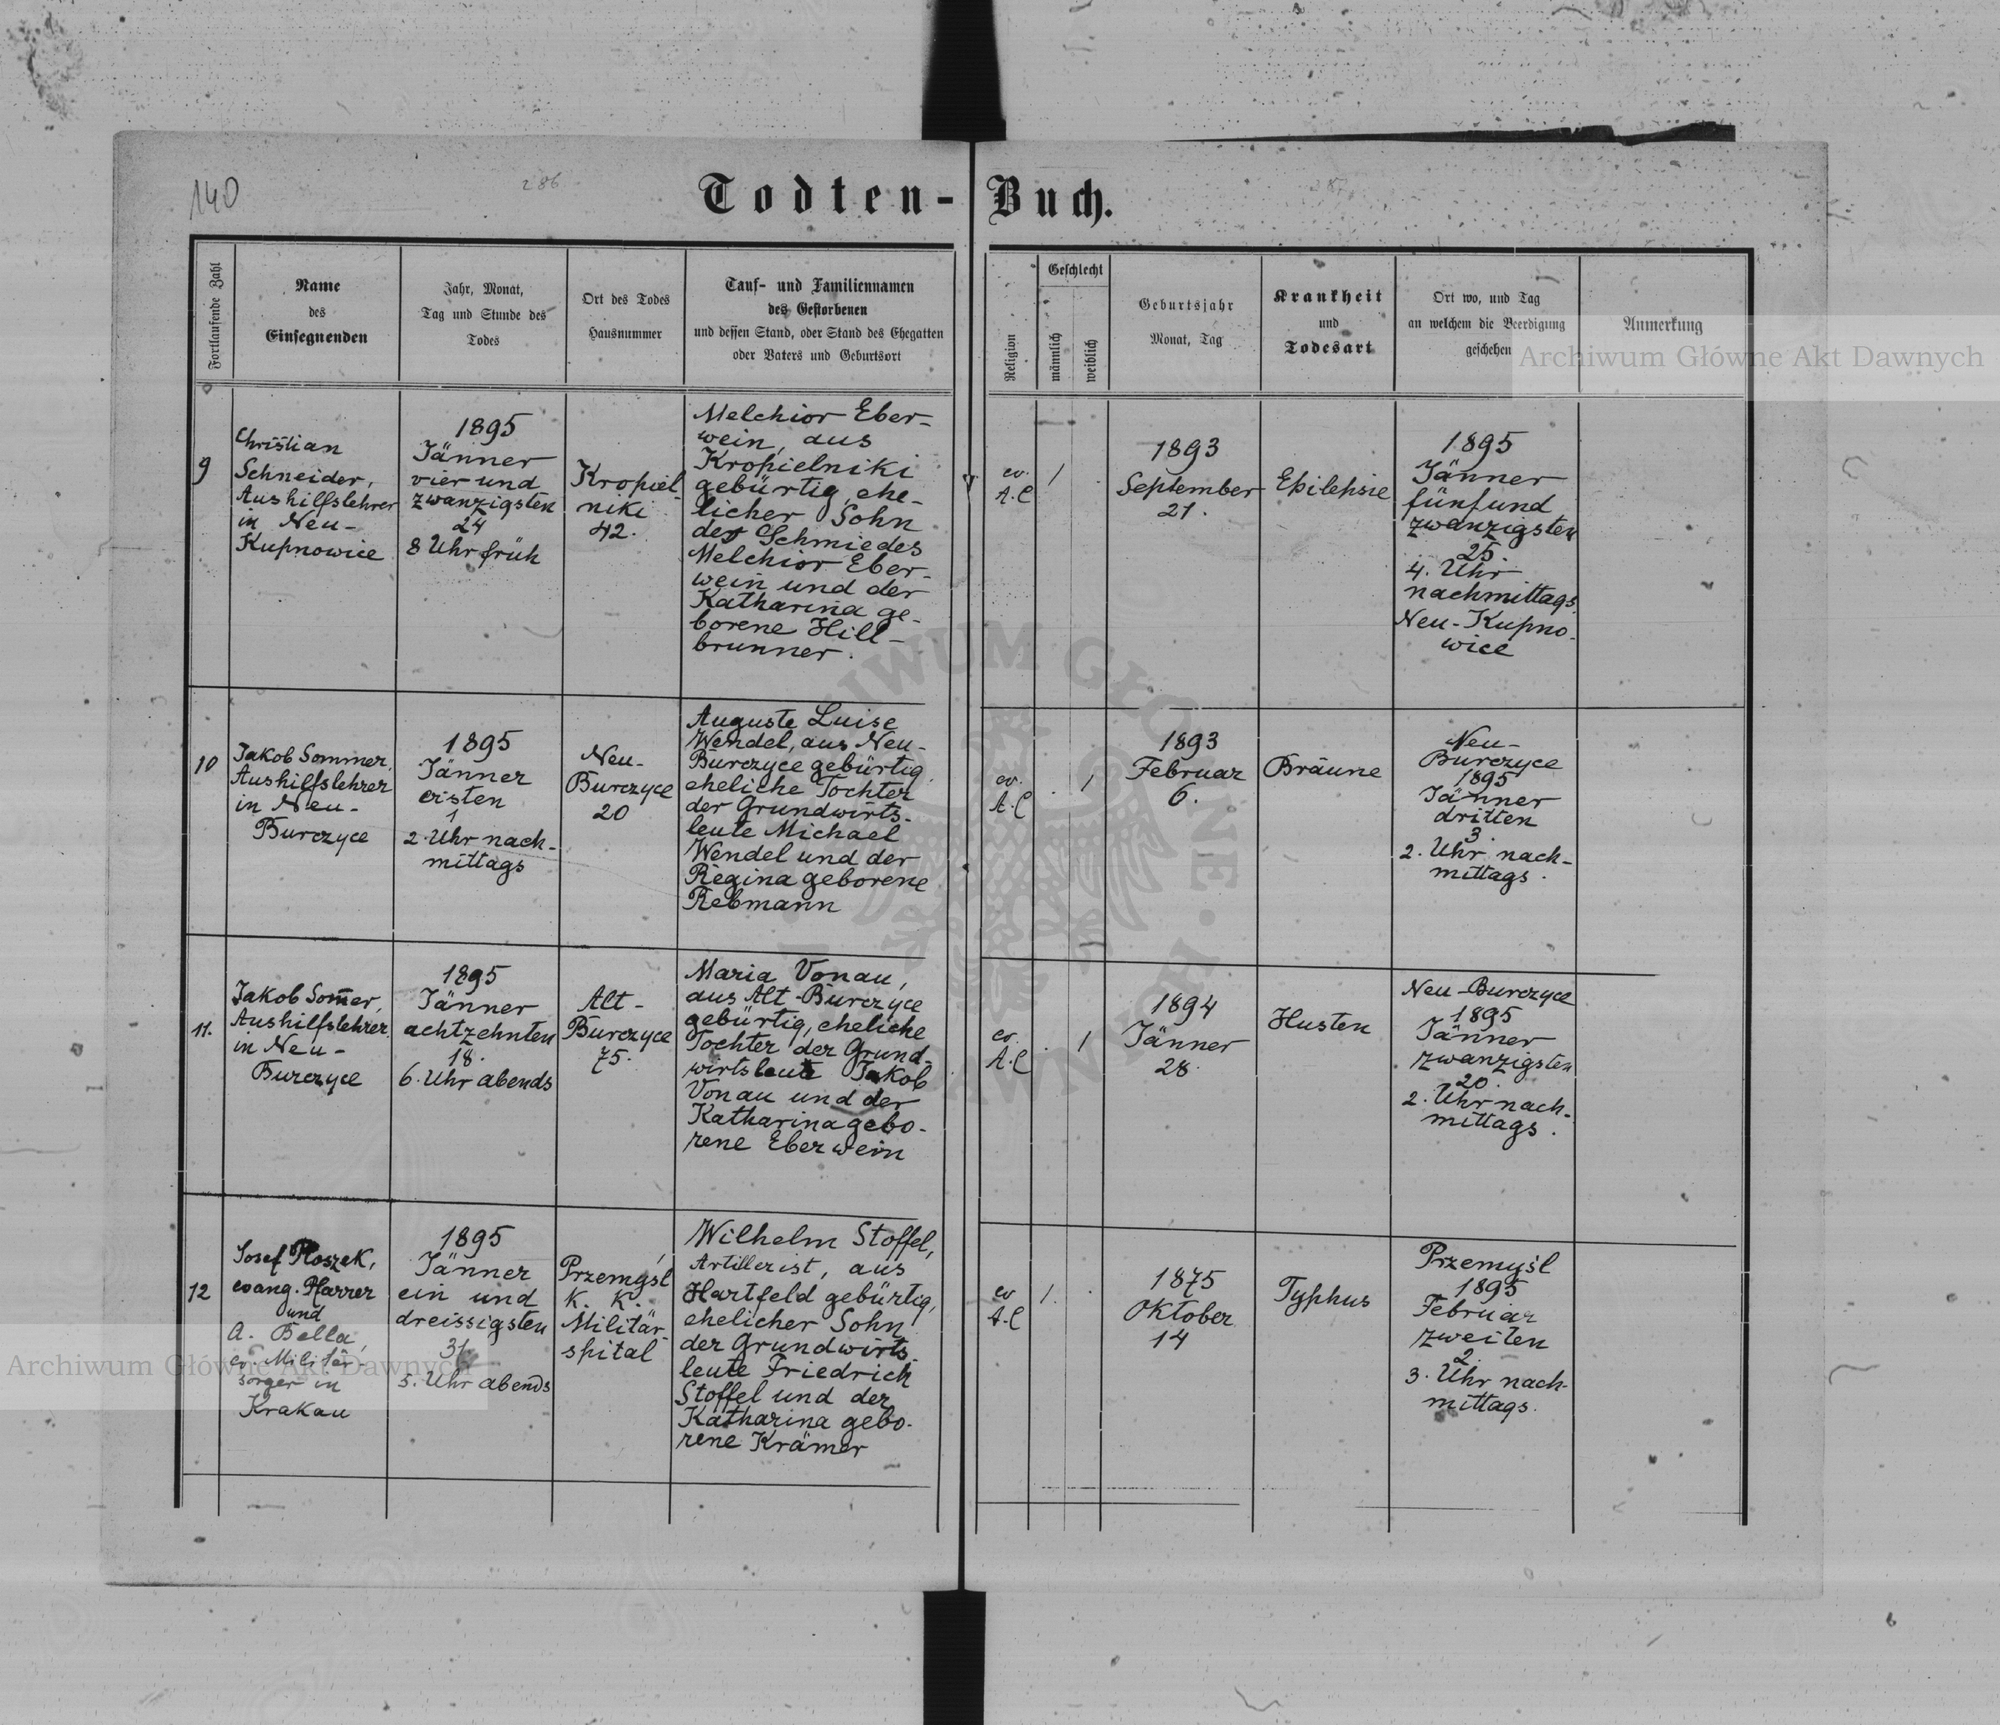 140
286
Todten-Buch.
Fortlaufende Zahl
Name
des
Einsegnenden
Jahr, Monat,
Tag und Stunde des
Todes
Ort des Todes
Hausnummer
Tauf- und Familiennamen
des Gestorbenen
und dessen Stand, oder Stand des Ehegatten
oder Vaters und Geburtsort
Religion
Geschlecht
männlich
weiblich
Geburtsjahr
Monat, Tag
Krankheit
und
Todesart
Ort wo, und Tag
an welchem die Beerdigung
geschehen
Anmerkung
Archiwum Główne Akt Dawnych
9
Christian
Schneider,
Aushilfslehrer
in Neu-
Kupnowice
1895
Jänner
vier und
zwanzigsten
24
8 Uhr früh
Kropiel-
niki
42.
Melchior Eber-
wein, aus
Kropielniki
gebürtig, ehe-
licher Sohn
des Schmiedes
Melchior Eber-
wein und der
Katharina ge-
borene Hill-
brunner.
ev.
A.C
1
.
1893
September
21.
Epilepsie
1895
Jänner
fünfund
zwanzigsten
25
4. Uhr
nachmittags.
Neu-Kupno-
wice
10
Jakob Sommer,
Aushilfslehrer
in Neu-
Burczyce
1895
Jänner
ersten
1
2. Uhr nach-
mittags
Neu-
Burczyce
20
Auguste Luise
Wendel, aus Neu-
Burczyce gebürtig
eheliche Tochter
der Grundwirts-
leute Michael
Wendel und der
Regina geborene
Rebmann
ev.
A.C
.
1
1893
Februar
6.
Bräune
Neu-
Burczyce
1895
Jänner
dritten
3.
2. Uhr nach-
mittags.
11.
Jakob Som̅er,
Aushilfslehrer
in Neu-
Burczyce
1895
Jänner
achtzehnten
18.
6. Uhr abends
Alt-
Burczyce
75.
Maria Vonau,
aus Alt-Burczyce
gebürtig, eheliche
Tochter der Grund-
wirtsleute Jakob
Vonau und der
Katharina gebo-
rene Eberwein
ev.
A.C
.
1
1894
Jänner
28.
Husten
Neu-Burczyce
1895
Jänner
zwanzigsten
20.
2. Uhr nach-
mittags.
12
Josef Ploszek,
evang. Pfarrer
und
A. Bella,
ev. Militär-
sorger in
Krakau
1895
Jänner
ein und
dreissigsten
31.
5. Uhr abends
Przemyśl
K. K.
Militär-
spital
Wilhelm Stoffel,
Artillerist, aus
Hartfeld gebürtig,
ehelicher Sohn
der Grundwirts-
leute Friedrich
Stoffel und der
Katharina gebo-
rene Krämer
ev
A.C
1.
.
1875
Oktober
14
Typhus
Przemyśl
1895
Februar
zweiten
2.
3. Uhr nach-
mittags.
Archiwum Główne Akt Dawnych